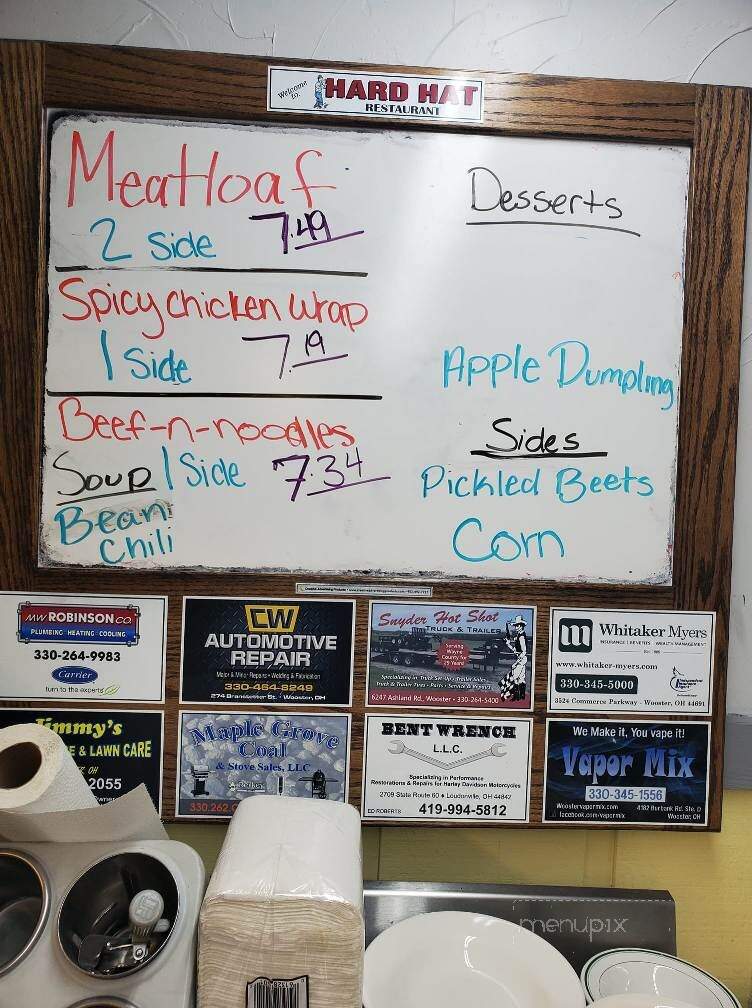 Welcome to:
HARD HAT
RESTAURANT
Meatloaf
2 Side 7.49
Spicy chicken wrap
1 Side 7.19
Beef-n-noodles
Soup 1 Side 7.34
Bean
Chili
Desserts
Apple Dumpling
Sides
Pickled Beets
Corn
MW ROBINSON CO.
PLUMBING HEATING COOLING
330-264-9983
Carrier
turn to the experts
CW
AUTOMOTIVE
REPAIR
Major & Minor Repairs • Welding & Fabrication
330-464-8249
274 Branstetter St. • Wooster, OH
Snyder Hot Shot
TRUCK & TRAILER
Serving
Wayne
County for
25 Years
Specializing in Truck Set-Ups • Trailer Sales
Truck & Trailer Tires • Parts • Service & Repairs
6247 Ashland Rd., Wooster • 330-264-5400
m Whitaker Myers
INSURANCE | BENEFITS WEALTH MANAGEMENT
www.whitaker-myers.com
330-345-5000
3524 Commerce Parkway · Wooster, OH 44691
Jimmy's
E & LAWN CARE
OH
2055
Maple Grove
Coal
& Stove Sales, LLC
330.262.
BENT WRENCH
L.L.C.
Specializing in Performance
Restorations & Repairs for Harley Davidson Motorcycles
2709 State Route 60 • Loudonville, OH 44842
ED ROBERTS 419-994-5812
We Make it, You vape it!
Vapor Mix
330-345-1556
Woostervapormix.com
facebook.com/vapormix
4182 Burbank Rd. Ste. D
Wooster, OH
menupix